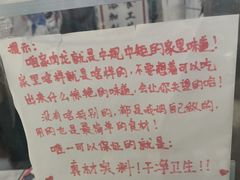 提示：
咱家肉龙就是中规中矩的家里味道！
家里啥样就是啥样的，不要想着可以吃
出来什么惊艳的味道，会让你失望的哈！
没有啥特别的，都是妈妈自己做的，
用的也是最简单的食材！
唯一可以保证的就是：
真材实料！干净卫生！！